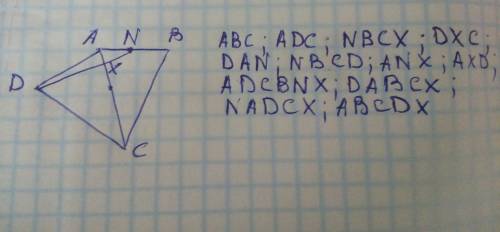 A N B
X
D
C
ABC; ADC; NBCX; DXC;
DAN; NBCD; ANX; AXD;
ADCBNX; DABCX;
NADCX; ABCDX